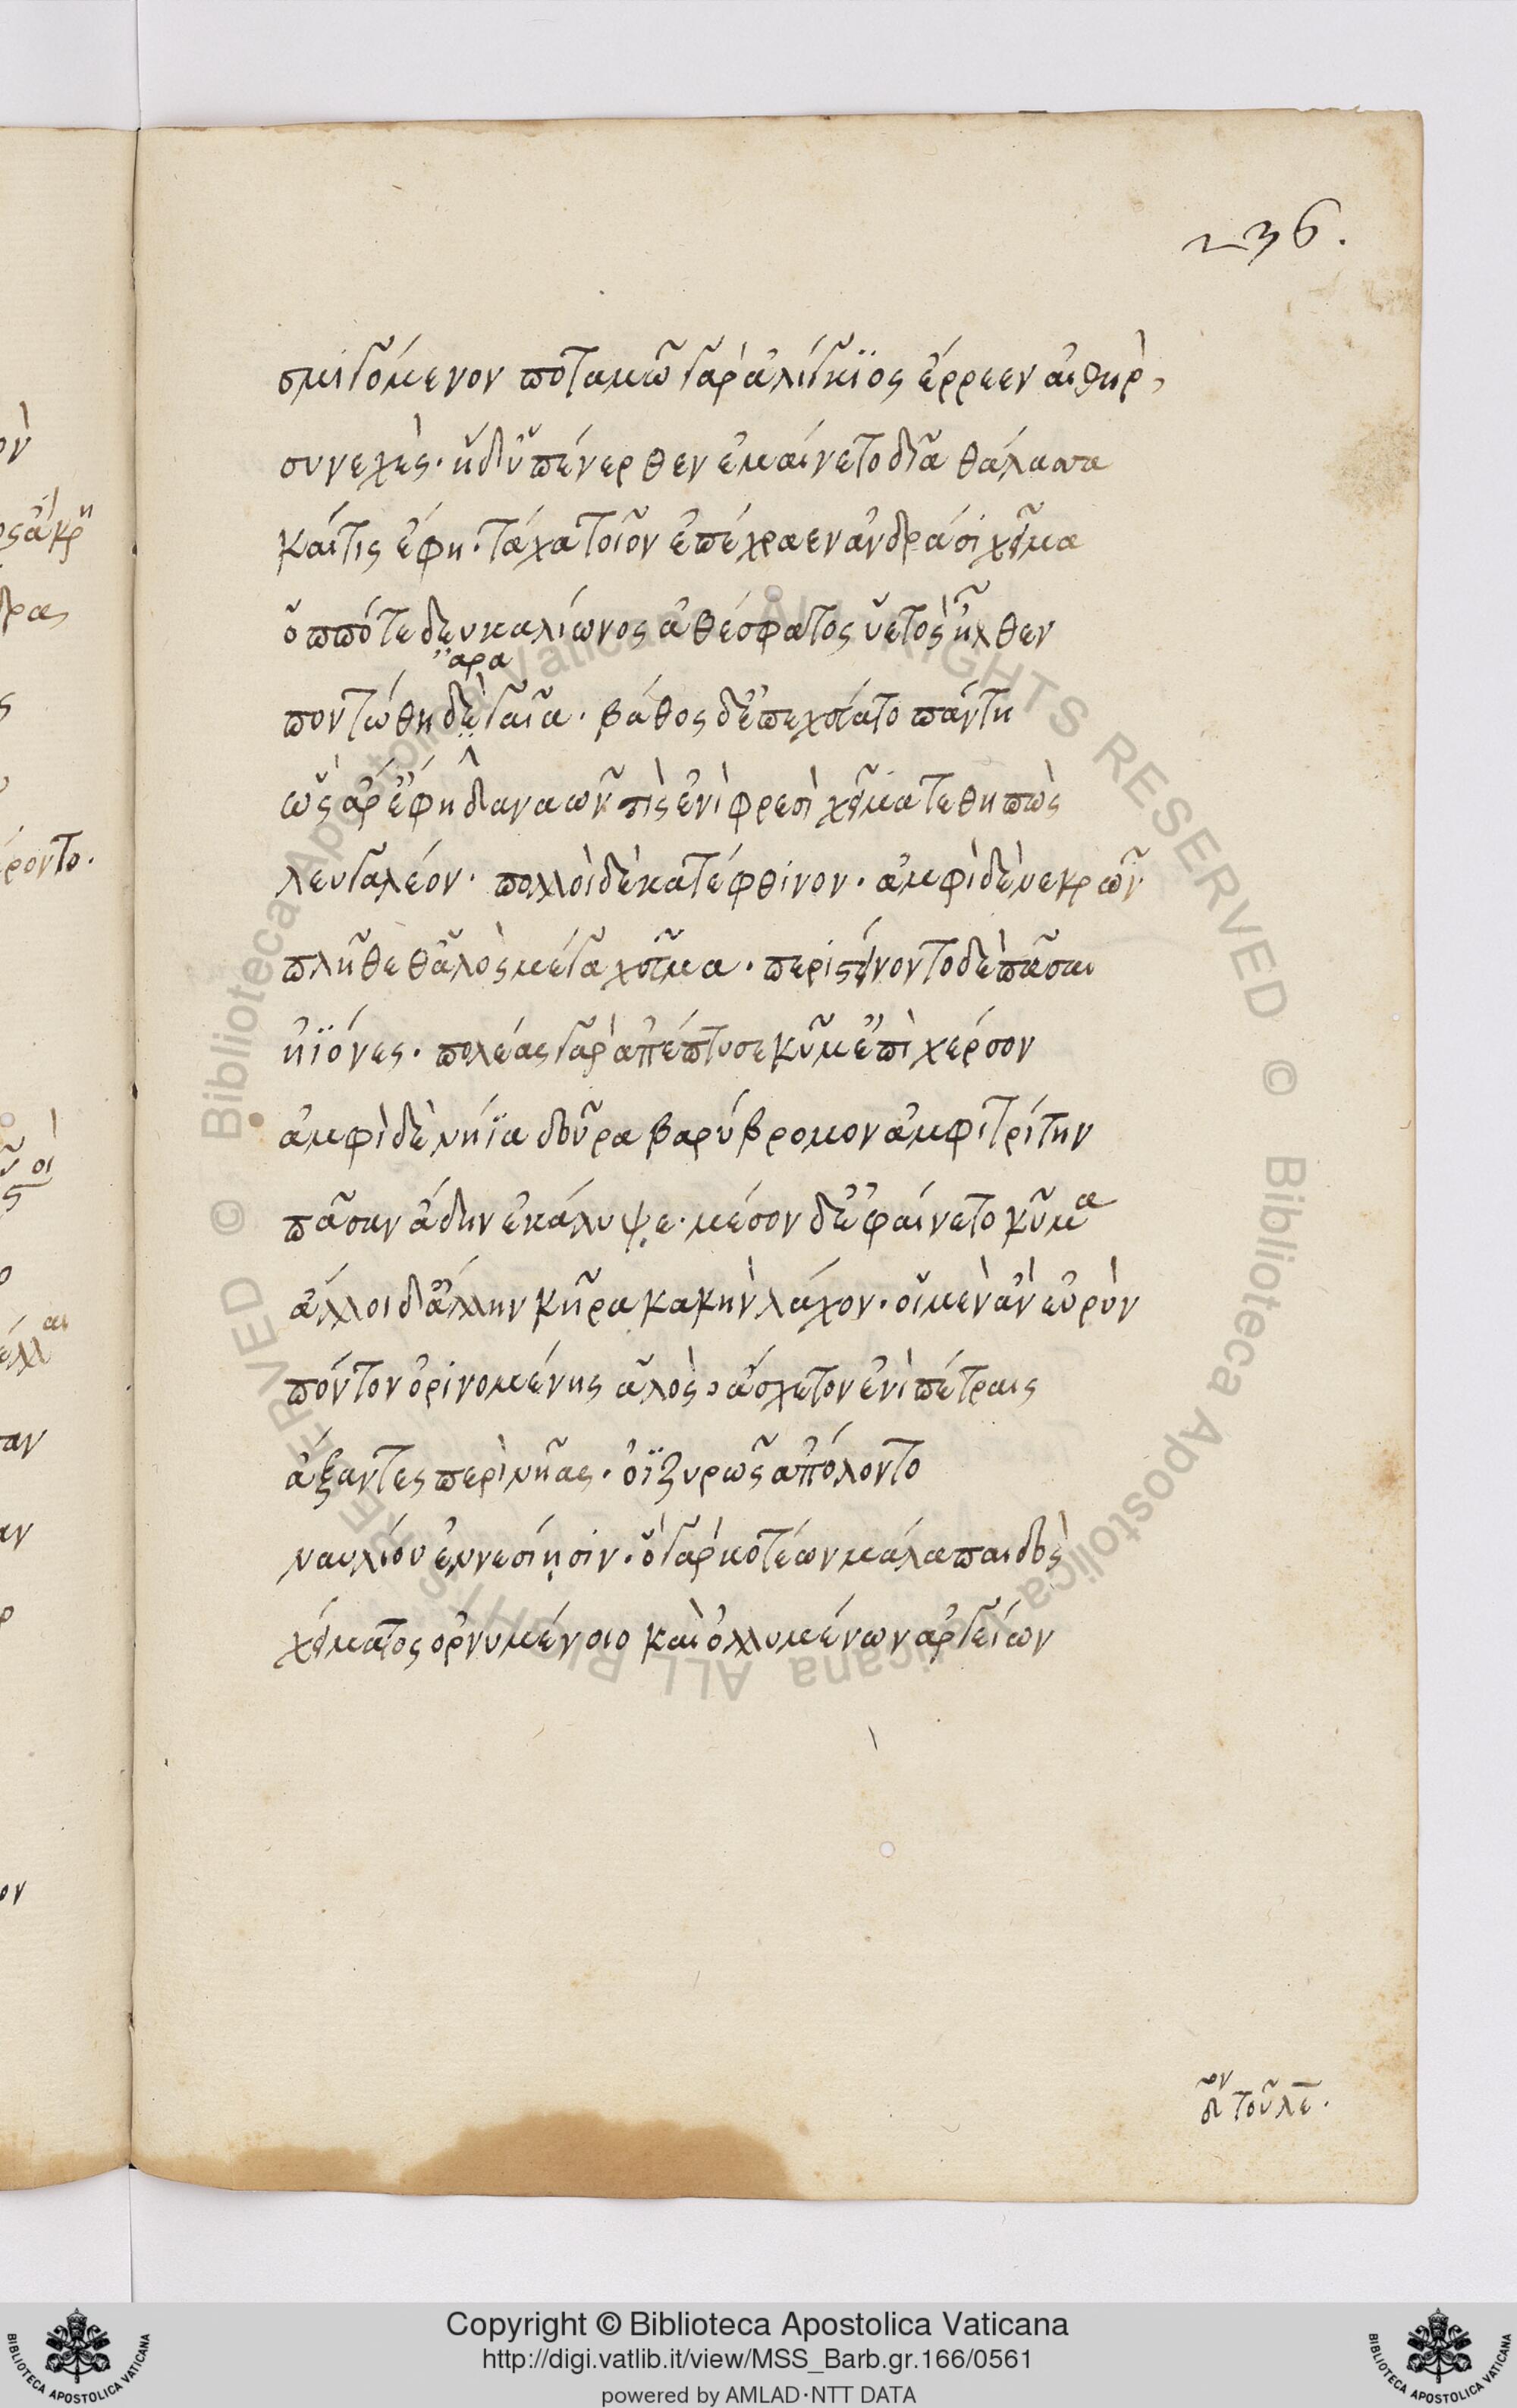 236.
σμιγόμενον ποταμῶ γὰρ ἀλίγκϊος ἔρρεεν αἰθὴρ,
συνεχὴς. ἣ δ' ὑπένερθεν ἐμαίνετο δῖα θάλασσα
καί τις ἔφη. τάχα τοῖον ἐπέχραεν ἀνδράσι χεῖμα
ὁππότε δευκαλίωνος ἀθέσφατος ὑετὸς ἦλθεν
ἄρα
ποντώθη δὲ γαῖα. βάθος δ' ἐπεχεύατο πάντη
ὣς ἄρ' ἔφη δαναῶν τὶς ἐνὶ φρεσὶ χεῖμα τεθηπὼς
λευγαλέον. πολλοὶ δὲ κατέφθινον. ἀμφὶ δὲ νεκρῶν
πλῆθε θ' ἁλὸς μέγα χεῦμα. περιστείνοντο δὲ πᾶσαι
ἠϊόνες. πολέας γὰρ ἀπέπτυσε κῦμ' ἐπὶ χέρσον
ἀμφὶ δὲ νήϊα δοῦρα βαρύβρομον ἀμφιτρίτην
πᾶσαν ἄδην ἐκάλυψε. μέσον δ' ἐφαίνετο κῦμα
ἄλλοι δ' ἄλλην κῆρα κακὴν λάχον. οἳ μὲν ἀν' εὐρὺν
πόντον ὀρινομένης ἁλὸς, ἄσχετον ἐνὶ πέτραις
ἄξαντες περὶ νῆας. ὀϊζυρῶς ἀπόλοντο
ναυλίου ἐννεσίῃσιν. ὃ γὰρ κοτέων μάλα παιδὸς
χείματος ὀρνυμένοιο καὶ ὀλλυμένων ἀργείων
τοῦ λε.
Copyright © Biblioteca Apostolica Vaticana
http://digi.vatlib.it/view/MSS_Barb.gr.166/0561
powered by AMLAD·NTT DATA